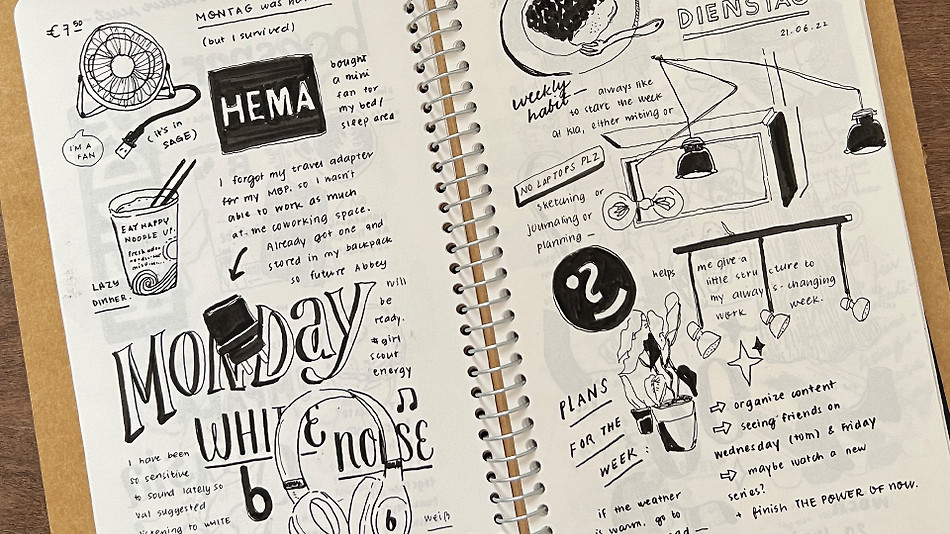 €7.50
MONTAG was
(but I survived)
I'M A
FAN
(it's in
SAGE)
HEMA
bought
a mini
fan for
my bed/
sleep area
EAT HAPPY
NOODLE UP.
LAZY
DINNER.
I forgot my travel adapter
for my MBP. so I wasn't
able to work as much
at the coworking space.
Already got one and
stored in my backpack
so future Abbey
will
be
ready.
#girl
scout
energy
MONDay
WHITE
NOISE
I have been
so sensitive
to sound lately so
Val suggested
listening to WHITE
b
b
weiß
DIENSTAG
21.06.22
weekly
habit — always like
to start the week
at Kia, either writing or
NO LAPTOPS PLZ
sketching or
journaling or
planning —
helps me give a
little structure to
my always-changing
work week.
PLANS
FOR THE
WEEK:
⇨ organize content
⇨ seeing friends on
wednesday (tom) & Friday
⇨ maybe watch a new
series?
+ finish THE POWER OF NOW.
if the weather
is warm, go to